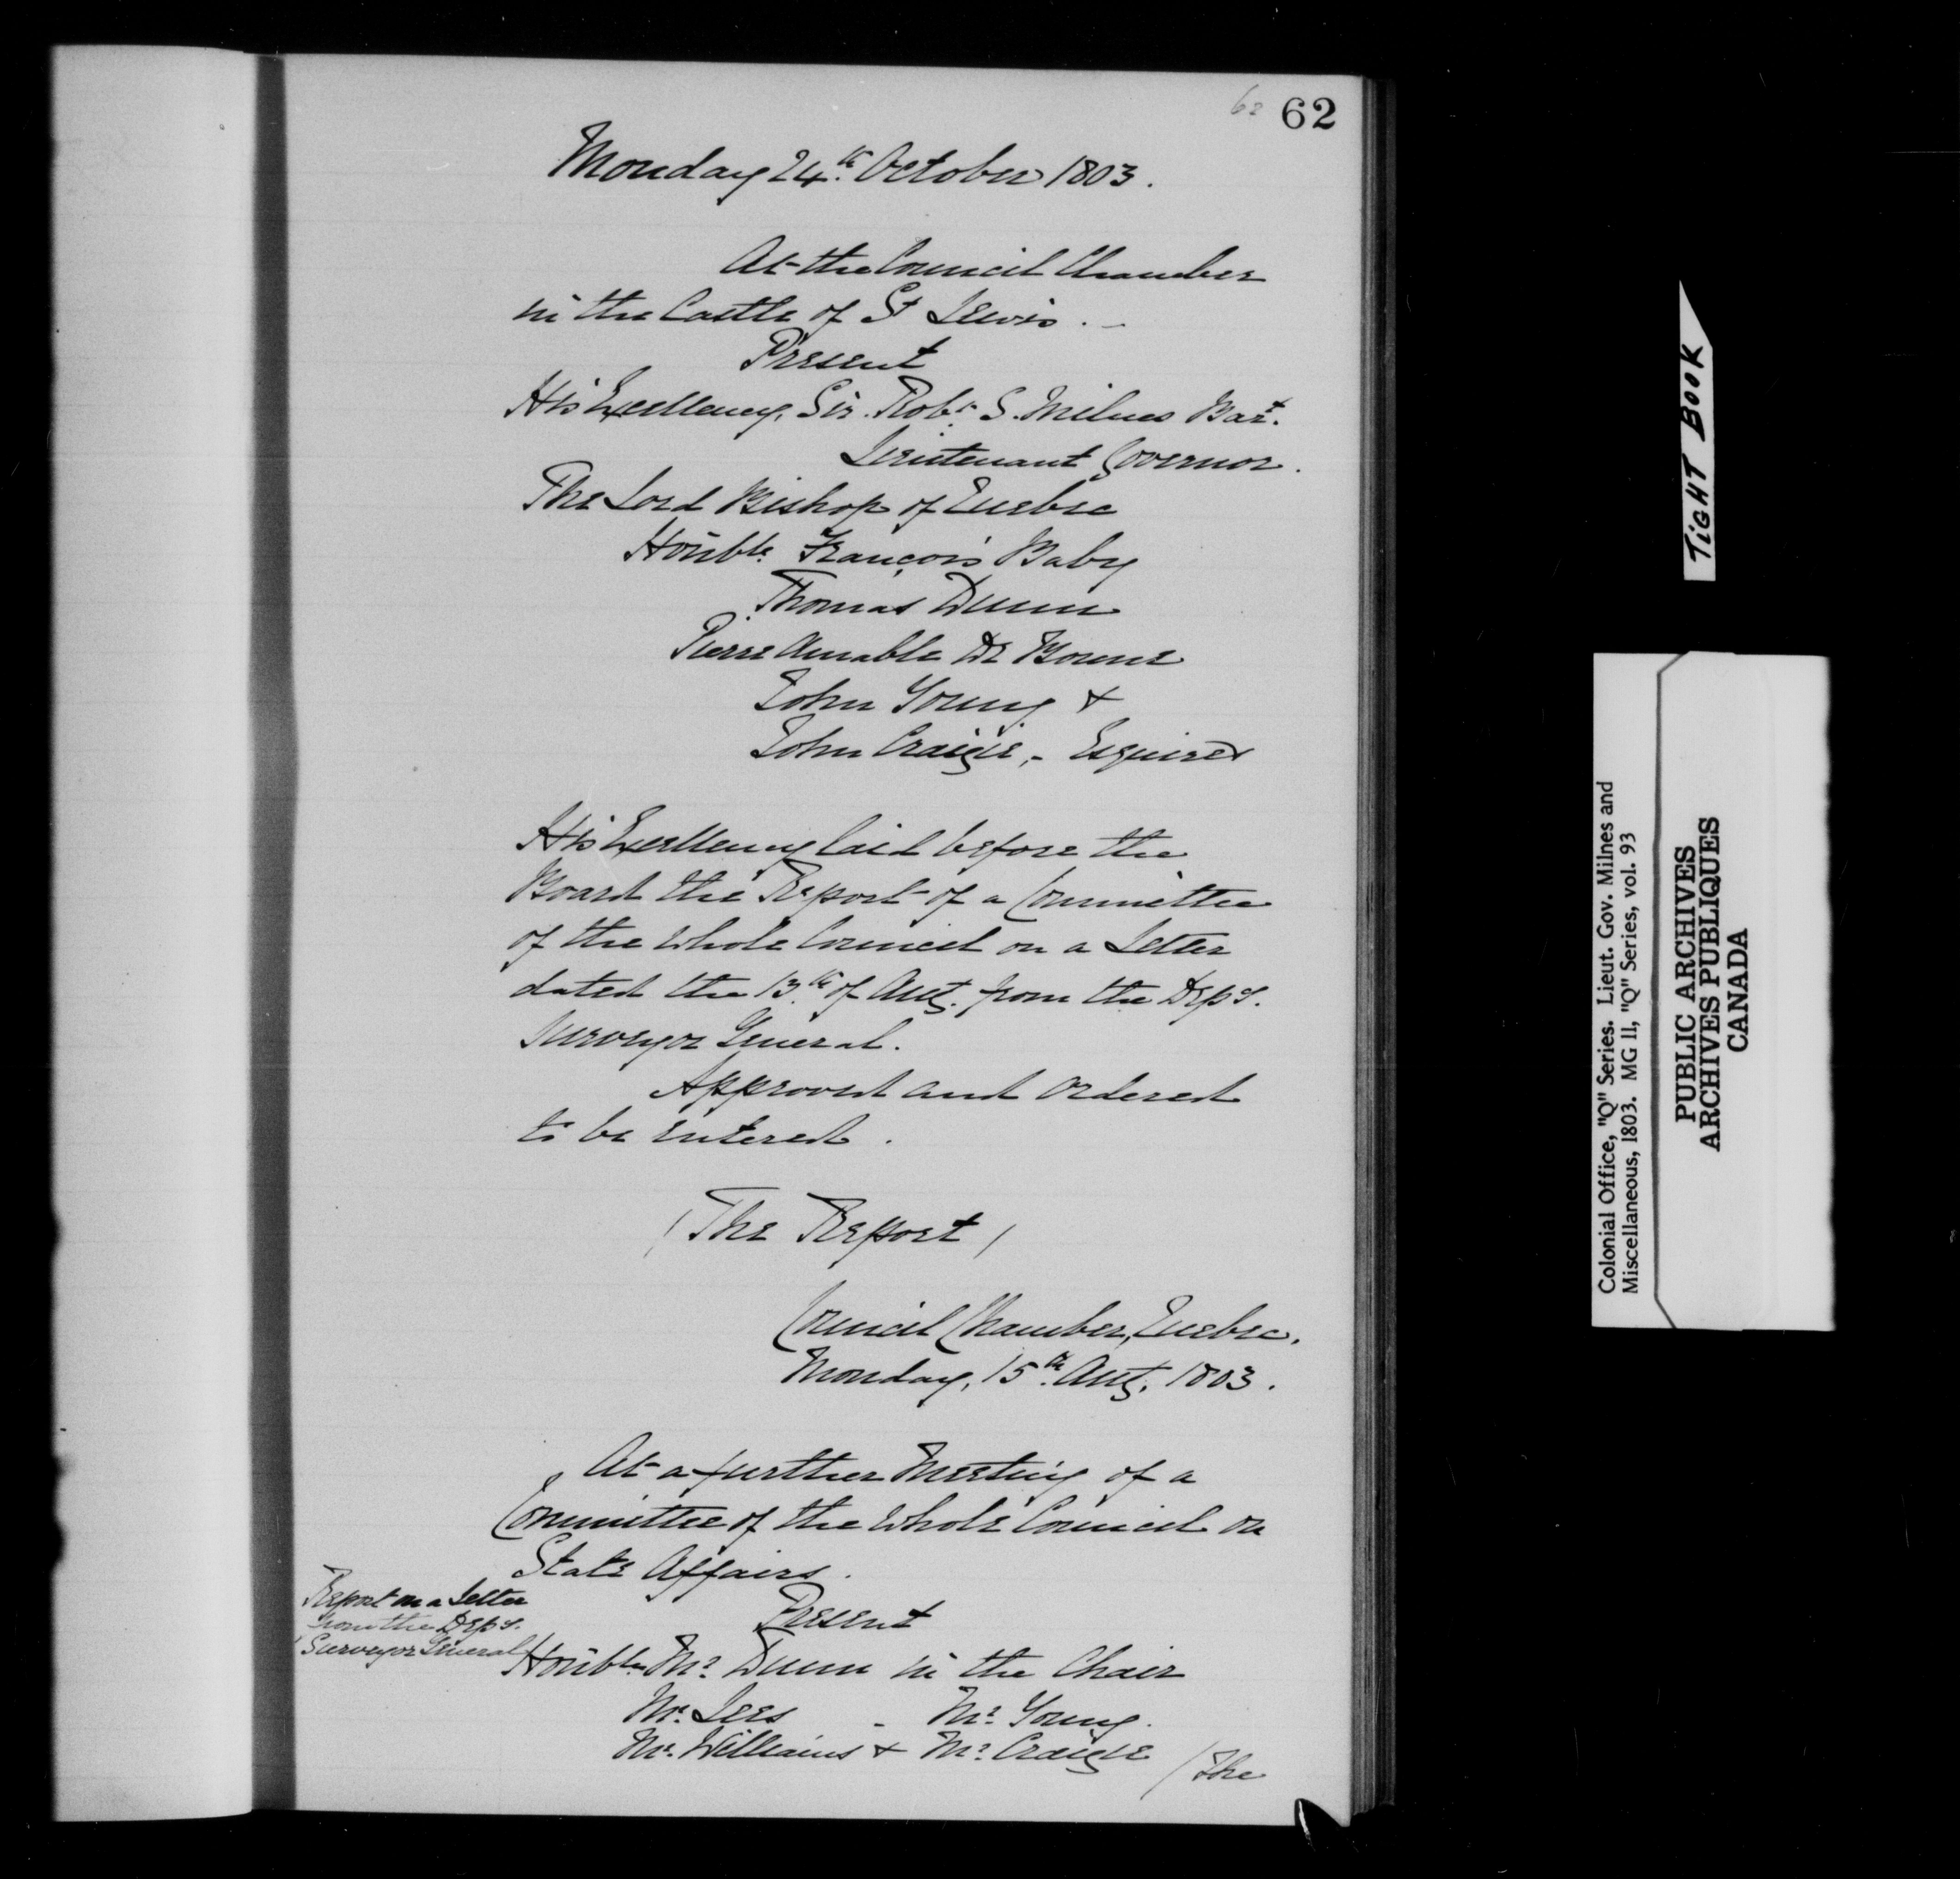 62 62
Monday 24th. October 1803.
At the Council Chamber
in the Castle of St Lewis. -
Present
His Excellency, Sir. Robt. S. Milnes Bart.
Lieutenant Governor.
The Lord Bishop of Quebec
Honble. François Baby
Thomas Dunn
Pierre Amable De Bonne
John Young &
John Craigie, - Esquires
His Excellency laid before the
Board the Report of a Committee
of the whole Council on a Letter
dated the 13th. of Augt. from the Depy.
Surveyor General.
Approved and ordered
to be entered.
/ The Report /
Council Chamber, Quebec.
Monday, 15th. Aug. 1803.
At a further Meeting of a
Committee of the whole Council on
State Affairs.
Report on a Letter
from the Depy.
Surveyor General
Present
Honble. Mr. Dunn in the Chair
Mr. Lees - Mr. Young.
Mr. Williams & Mr. Craigie
/ The
TiGHT BOOK
Colonial Office, "Q" Series. Lieut. Gov. Milnes and
Miscellaneous, 1803. MG 11, "Q" Series, vol. 93
PUBLIC ARCHIVES
ARCHIVES PUBLIQUES
CANADA